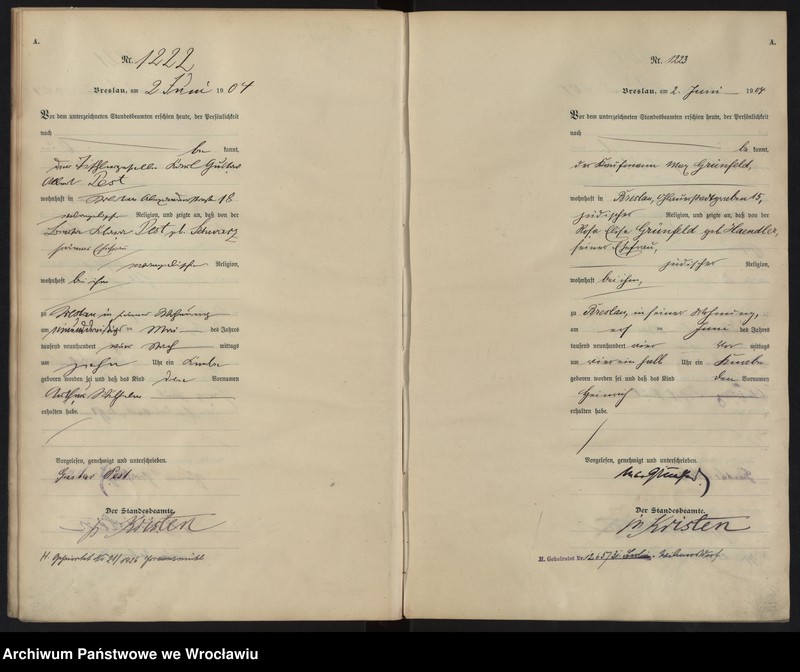 A.
Nr. 1222
Breslau, am 2 Juni 1904
Vor dem unterzeichneten Standesbeamten erschien heute, der Persönlichkeit
nach
be kannt,
Karl Gustav
Albert Pest
wohnhaft in Breslau 18
evangelischer Religion, und zeigte an, daß von der
Klara Pest geb. Schwarz
seiner Ehefrau
evangelischer Religion,
wohnhaft bei ihm
zu Breslau in seiner Wohnung
am Mai des Jahres
tausend neunhundert vier Nach mittags
um zehn Uhr ein Knabe
geboren worden sei und daß das Kind den Vornamen
Arthur Wilhelm
erhalten habe.
Vorgelesen, genehmigt und unterschrieben.
Gustav Pest
Der Standesbeamte.
Kristen
A.
Nr. 1223
Breslau, am 2. Juni 1904
Vor dem unterzeichneten Standesbeamten erschien heute, der Persönlichkeit
nach
be kannt,
der Kaufmann Max Grünfeld,
wohnhaft in Breslau, Ohlauerstadtgraben 15,
jüdischer Religion, und zeigte an, daß von der
Rosa Grünfeld geb. Haendler,
seiner Ehefrau,
jüdischer Religion,
wohnhaft bei ihm,
zu Breslau, in seiner Wohnung,
am Juni des Jahres
tausend neunhundert vier Vor mittags
um vier ein halb Uhr ein Knabe
geboren worden sei und daß das Kind den Vornamen
Heinrich
erhalten habe.
Vorgelesen, genehmigt und unterschrieben.
Max Grünfeld
Der Standesbeamte.
Kristen
H. Geheiratet Nr.
Archiwum Państwowe we Wrocławiu